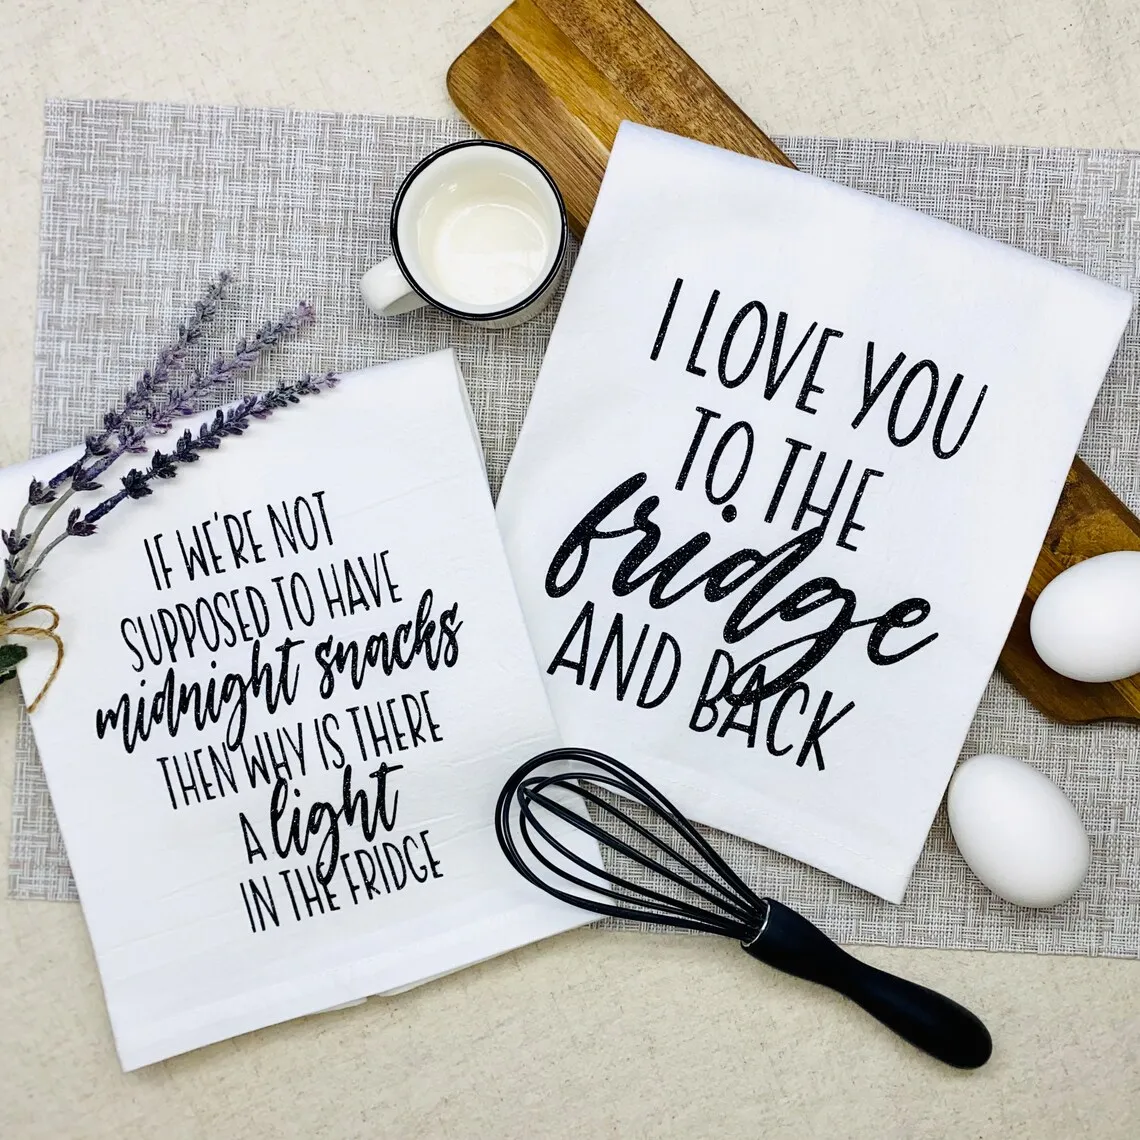 IF WE'RE NOT
SUPPOSED TO HAVE
midnight snacks
THEN WHY IS THERE
A light
IN THE FRIDGE
I LOVE YOU
TO THE
fridge
AND BACK